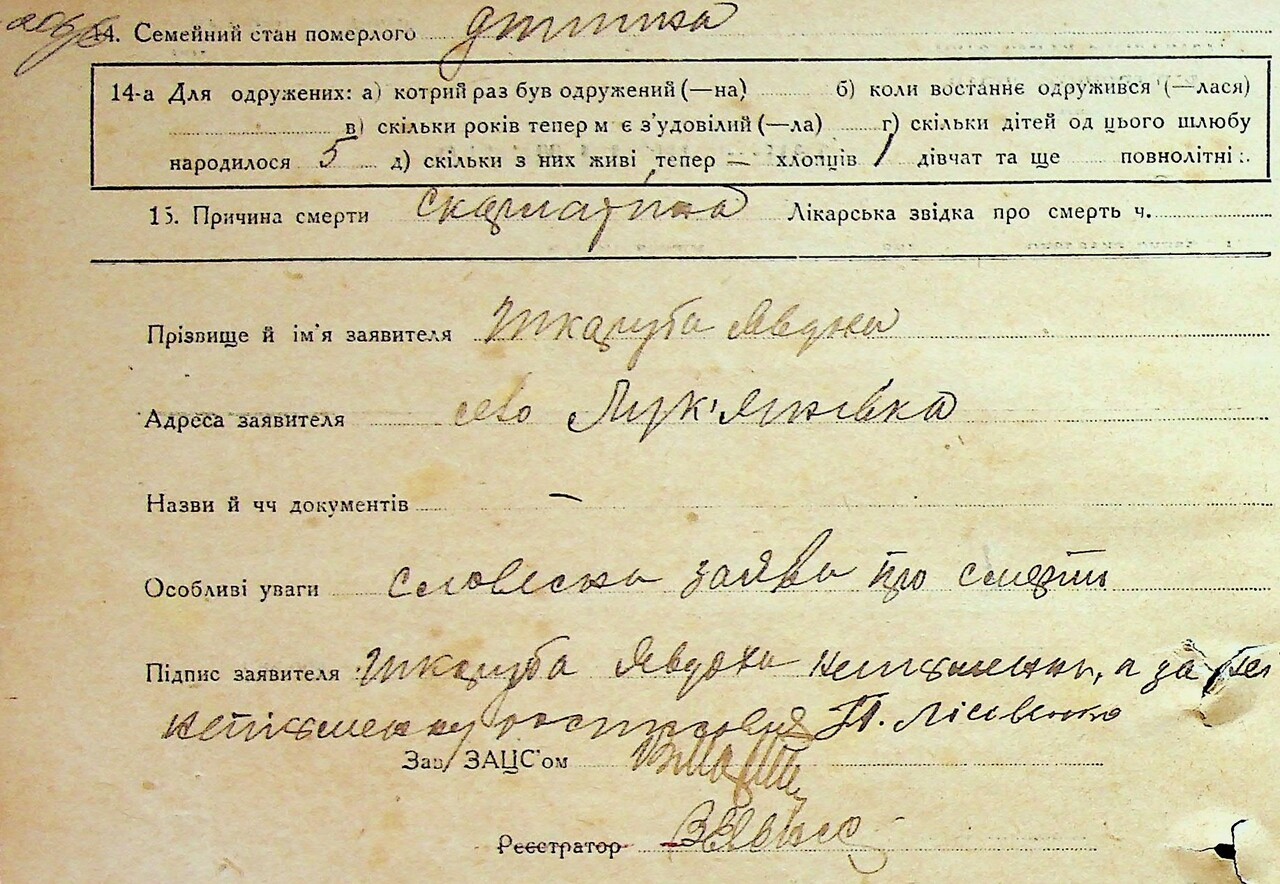 14. Семейний стан померлого дитина
14-а Для одружених: а) котрий раз був одружений (—на) б) коли востаннє одружився (—лася)
в) скільки років тепер м є з'удовілий (—ла) г) скільки дітей од цього шлюбу
народилося 5 д) скільки з них живі тепер — хлопців 1 дівчат та ще повнолітні
15. Причина смерти скарлатіна Лікарська звідка про смерть ч.
Прізвище й ім'я заявителя Шкаруба Явдоха
Адреса заявителя село Лук'янівка
Назви й чч документів —
Особливі уваги словесна заява про смерть
Підпис заявителя Шкаруба Явдоха неписьменна, а за неї
неписьменну П. Лісовенко
Зав ЗАЦС'ом
Реєстратор